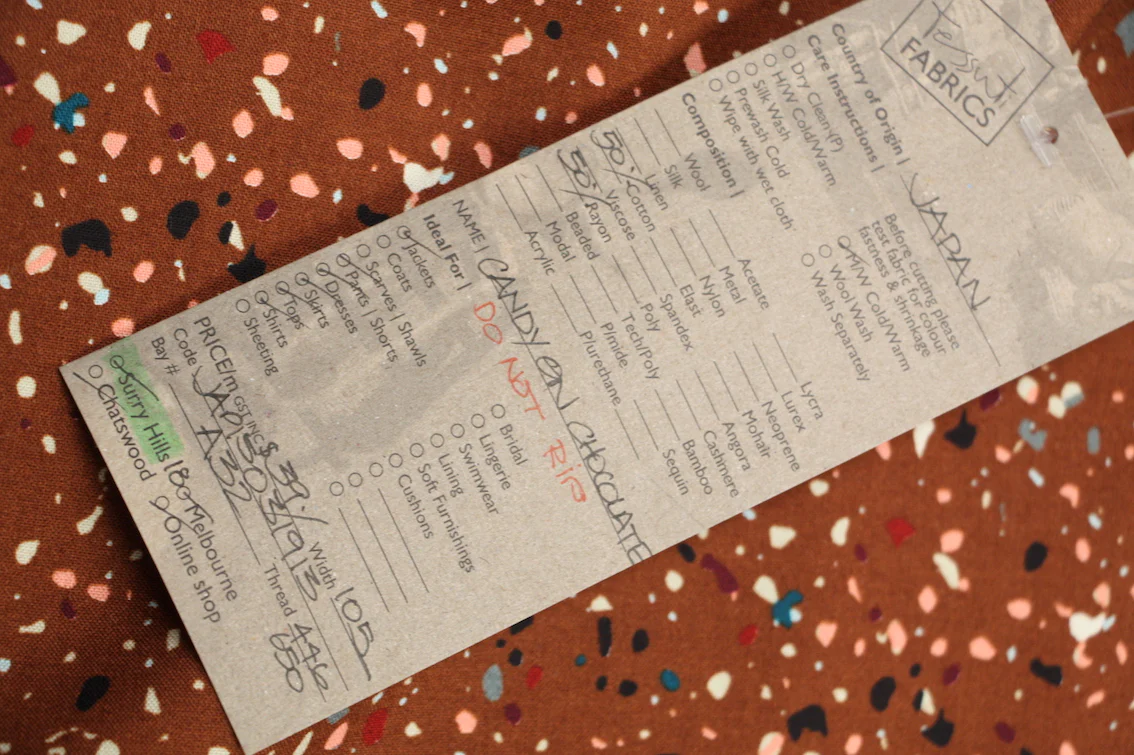 tessuti
FABRICS
Country of Origin | JAPAN
Care Instructions |
Before cutting please
test fabric for colour
fastness & shrinkage
Dry Clean (P)
H/W Cold/Warm
Silk Wash
Prewash Cold
Wipe with wet cloth
M/W Cold/Warm
Wool Wash
Wash Separately
Composition |
Wool
Silk
Linen
50% Cotton
Viscose
50% Rayon
Beaded
Modal
Acrylic
Acetate
Metal
Nylon
Elast
Spandex
Poly
Tech/Poly
P/mide
P/urethane
Lycra
Lurex
Neoprene
Mohair
Angora
Cashmere
Bamboo
Sequin
NAME | CANDY ON CHOCOLATE
DO NOT RIP
Ideal For |
Jackets
Coats
Scarves | Shawls
Pants | Shorts
Dresses
Skirts
Tops
Shirts
Sheeting
Bridal
Lingerie
Swimwear
Lining
Soft Furnishings
Cushions
PRICE/m GST INC $ 39/ Width 105
Code JAP1503/913 Thread 446
650
Bay # A32
Surry Hills 180 Melbourne
Chatswood Online shop